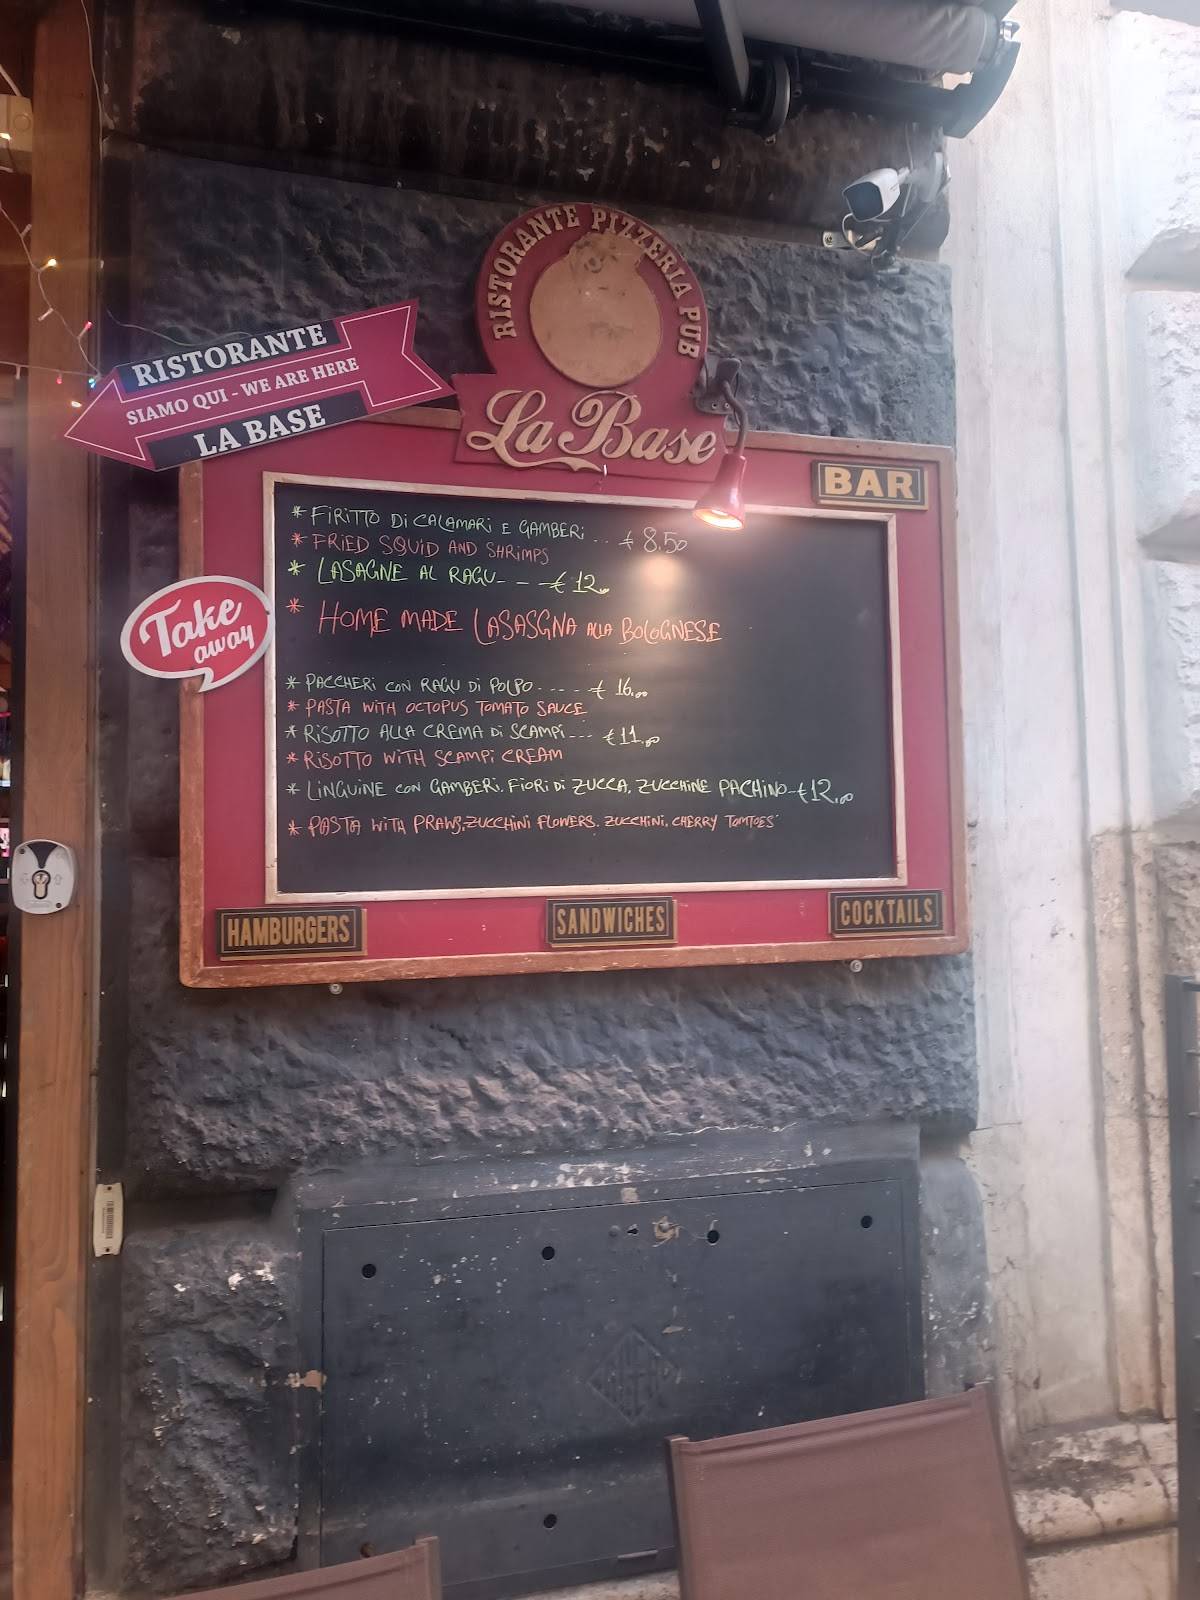 RISTORANTE PIZZERIA PUB
La Base
RISTORANTE
SIAMO QUI - WE ARE HERE
LA BASE
BAR
Take
away
* FIRITTO DI CALAMARI E GAMBERI .. € 8.50
* FRIED SQUID AND SHRIMPS
* LASAGNE AL RAGU - - - € 12,00
* HOME MADE LASASGNA ALLA BOLOGNESE
* PACCHERI CON RAGU DI POLPO - - - - € 16,00
* PASTA WITH OCTOPUS TOMATO SAUCE
* RISOTTO ALLA CREMA DI SCAMPI - - - € 11,00
* RISOTTO WITH SCAMPI CREAM
* LINGUINE CON GAMBERI, FIORI DI ZUCCA, ZUCCHINE PACHINO - € 12,00
* PASTA WITH PRAWS, ZUCCHINI FLOWERS, ZUCCHINI, CHERRY TOMTOES
HAMBURGERS
SANDWICHES
COCKTAILS